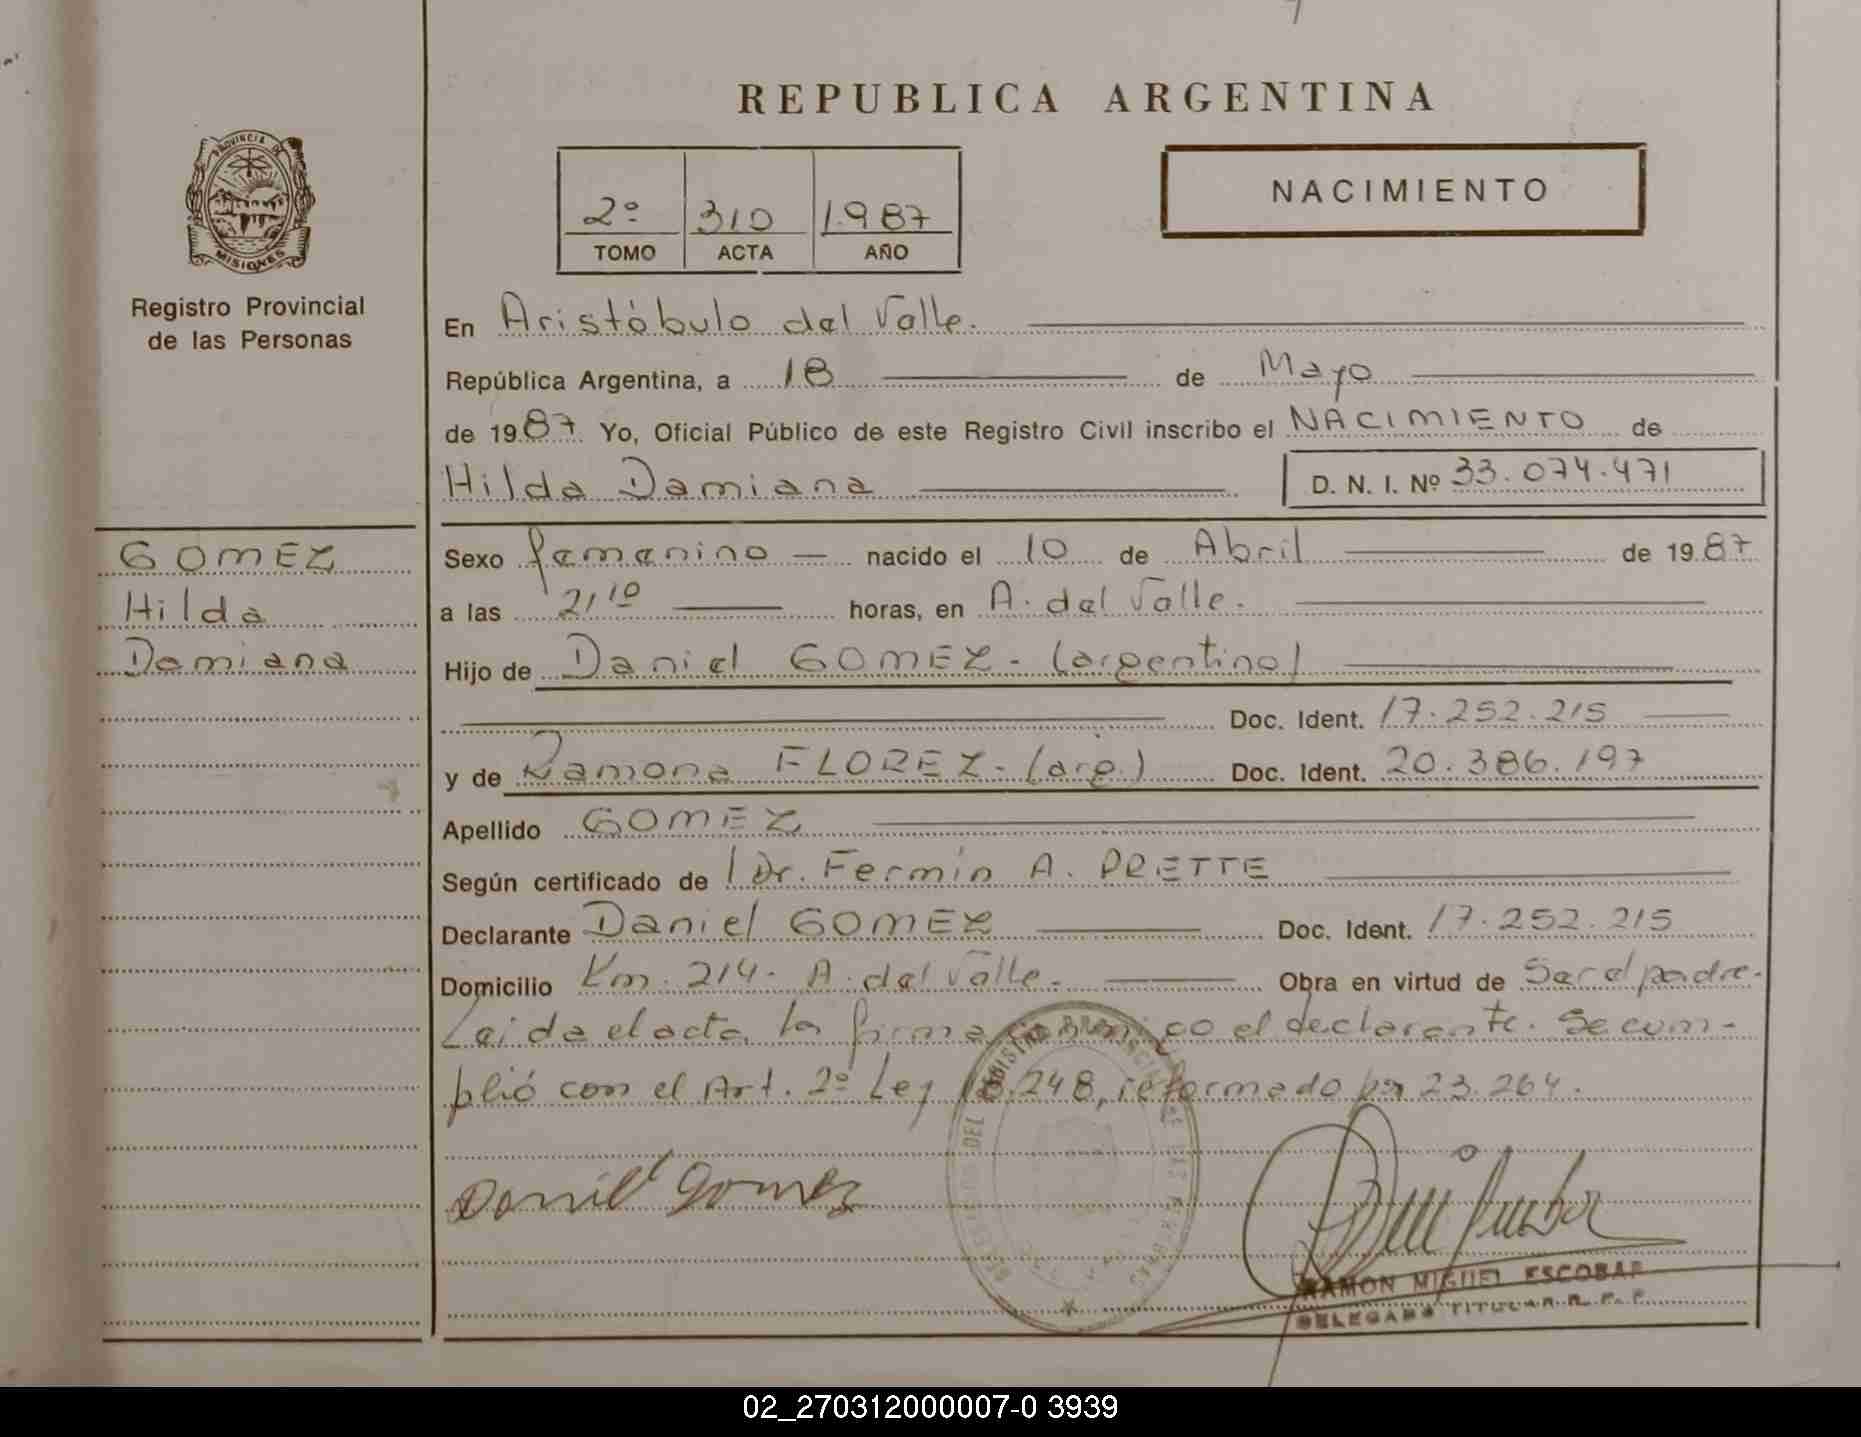 REPUBLICA ARGENTINA
PROVINCIA DE
MISIONES
Registro Provincial
de las Personas
2º 310 1.987
TOMO ACTA AÑO
NACIMIENTO
En Aristóbulo del Valle.
República Argentina, a 18 de Mayo
de 1987 Yo, Oficial Público de este Registro Civil inscribo el NACIMIENTO de
Hilda Damiana D. N. I. Nº 33.074.471
GOMEZ
Hilda
Damiana
Sexo femenino — nacido el 10 de Abril de 1987
a las 21,10 horas, en A. del Valle.
Hijo de Daniel GOMEZ - (argentino)
Doc. Ident. 17.252.215
y de Ramona FLOREZ - (arg.) Doc. Ident. 20.386.197
Apellido GOMEZ
Según certificado de Dr. Fermín A. PRETTE
Declarante Daniel GOMEZ Doc. Ident. 17.252.215
Domicilio Km. 214 - A. del Valle. Obra en virtud de Ser el padre.
Leida el acta, la firma conmigo el declarante. Se cum-
plió con el Art. 2º Ley 18.248, reformado por 23.264.
Daniel Gomez
RAMON MIGUEL ESCOBAR
DELEGADO TITULAR R. P. P.
02_270312000007-0 3939